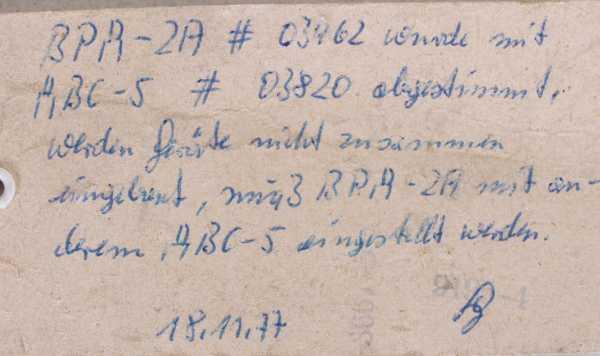 BPA-2A # 03962 wurde mit
ABC-5 # 03820 abgestimmt,
werden Geräte nicht zusammen
eingebaut, muß BPA-2A mit an-
derem ABC-5 eingestellt werden.
18.11.77